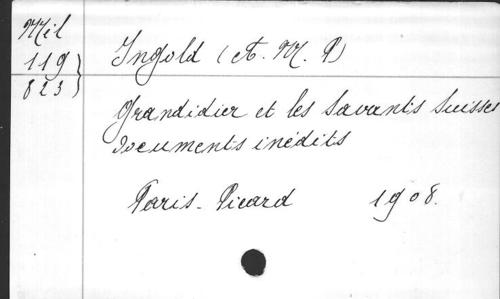 Mel
119
823
Ingold (A. M. P)
Grandidier et les Savants Suisses
Documents inédits
Paris - Picard 1908.